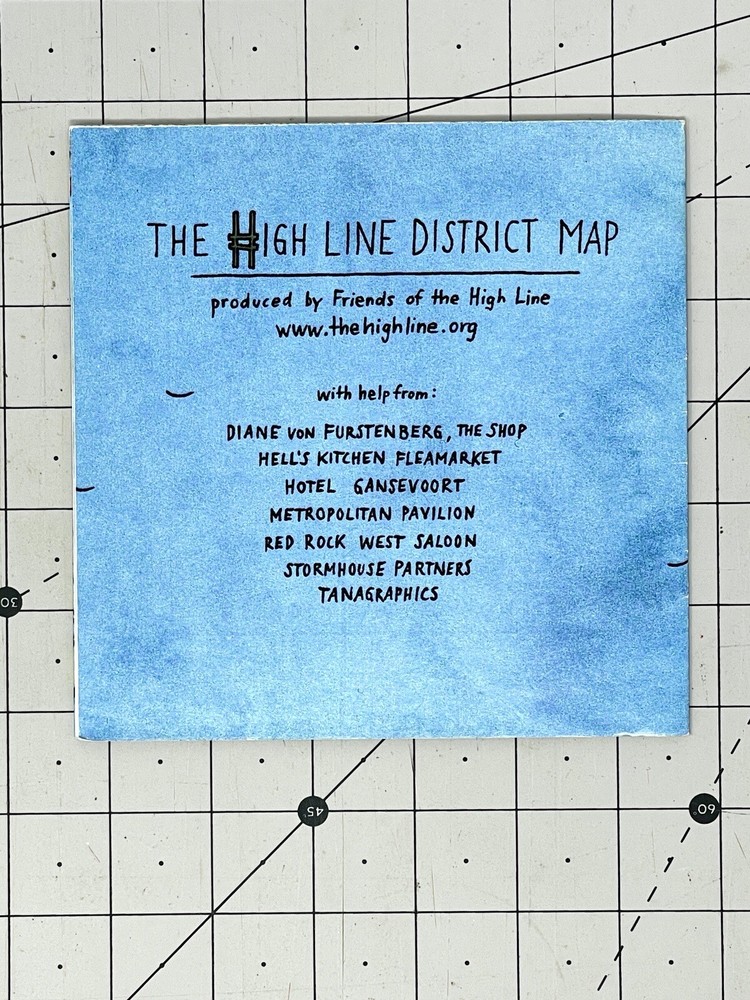 THE HIGH LINE DISTRICT MAP
produced by Friends of the High Line
www.thehighline.org
with help from:
DIANE VON FURSTENBERG, THE SHOP
HELL'S KITCHEN FLEAMARKET
HOTEL GANSEVOORT
METROPOLITAN PAVILION
RED ROCK WEST SALOON
STORMHOUSE PARTNERS
TANAGRAPHICS
30°
45°
60°